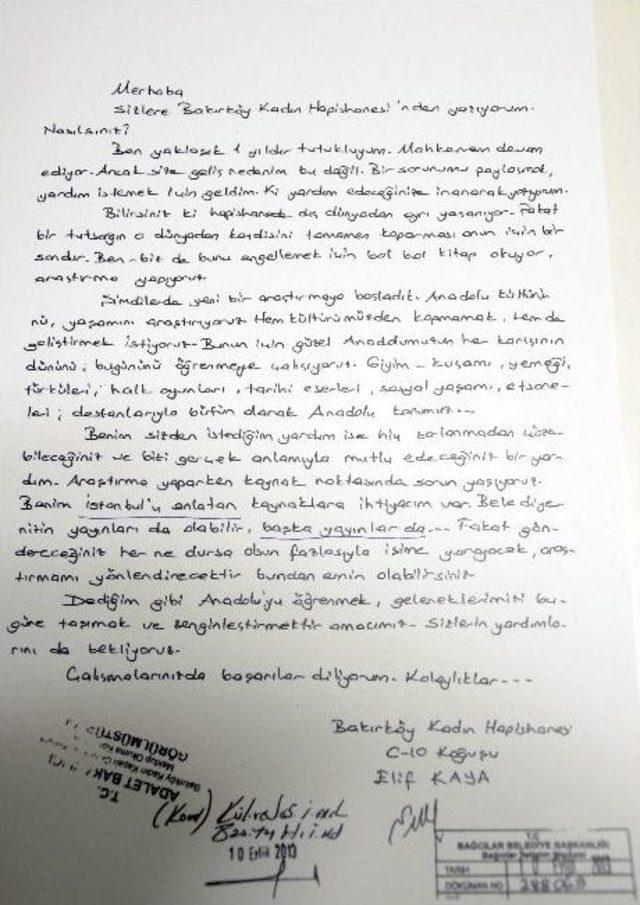 Merhaba
Sizlere Bakırköy Kadın Hapishanesi'nden yazıyorum.
Nasılsınız?
Ben yaklaşık 1 yıldır tutukluyum. Mahkemem devam
ediyor. Ancak size geliş nedenim bu değil. Bir sorunumu paylaşmak,
yardım istemek için geldim. Ki yardım edeceğinize inanarak yazıyorum.
Bilirsiniz ki hapishanede dış dünyadan ayrı yaşanıyor. Fakat
bir tutsağın o dünyadan kendisini tamamen koparması onun için bir
sondur. Ben-biz de bunu engellemek için bol bol kitap okuyor,
araştırma yapıyoruz.
Şimdilerde yeni bir araştırmaya başladık. Anadolu kültürü-
nü, yaşamını araştırıyoruz. Hem kültürümüzden kopmamak, hem de
geliştirmek istiyoruz. Bunun için güzel Anadolumuzun her karışının
dününü, bugününü öğrenmeye çalışıyoruz. Giyim-kuşamı, yemeği,
türküleri, halk oyunları, tarihi eserleri, sosyal yaşamı, efsane-
leri, destanlarıyla bütün olarak Anadolu
Benim sizden istediğim yardım ise hiç zorlanmadan çöze-
bileceğiniz ve bizi gerçek anlamıyla mutlu edeceğiniz bir yar-
dım. Araştırma yaparken kaynak noktasında sorun yaşıyoruz.
Benim İstanbul'u anlatan kaynaklara ihtiyacım var. Belediye-
nizin yayınları da olabilir, başka yayınlar da... Fakat gön-
dereceğiniz her ne olursa olsun fazlasıyla işime yarayacak, araş-
tırmamı yönlendirecektir bundan emin olabilirsiniz.
Dediğim gibi Anadolu'yu öğrenmek, geleneklerimizi bu-
güne taşımak ve zenginleştirmektir amacımız. Sizlerin yardımla-
rını da bekliyoruz.
Çalışmalarınızda başarılar diliyorum. Kolaylıklar...
Bakırköy Kadın Hapishanesi
C-10 Koğuşu
Elif KAYA
T.C.
ADALET BAK
Bakırköy Kadın Kapalı
Mektup Okuma
GÖRÜLMÜŞTÜR
10 Eylül 2013
T.C.
BAĞCILAR BELEDİYE BAŞKANLIĞI
TARİH
DÖKÜMAN NO